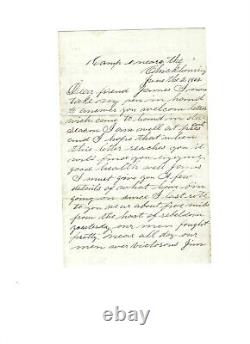 Camp neare the
Chickhominy
June the 2 1862
Dear friend James I now
take my pen in hand
to answer you welcome letter
wich come to hand in due
season I am well at
and I hope that when
this letter reaches you it
will find you enjoying
good health well James
I must give you A few
details of what have bin
going on since I last
to you we are about five mile
from the heart of rebeldom
yesterday our men fought
pretty near all day our
men ever victorous Jim